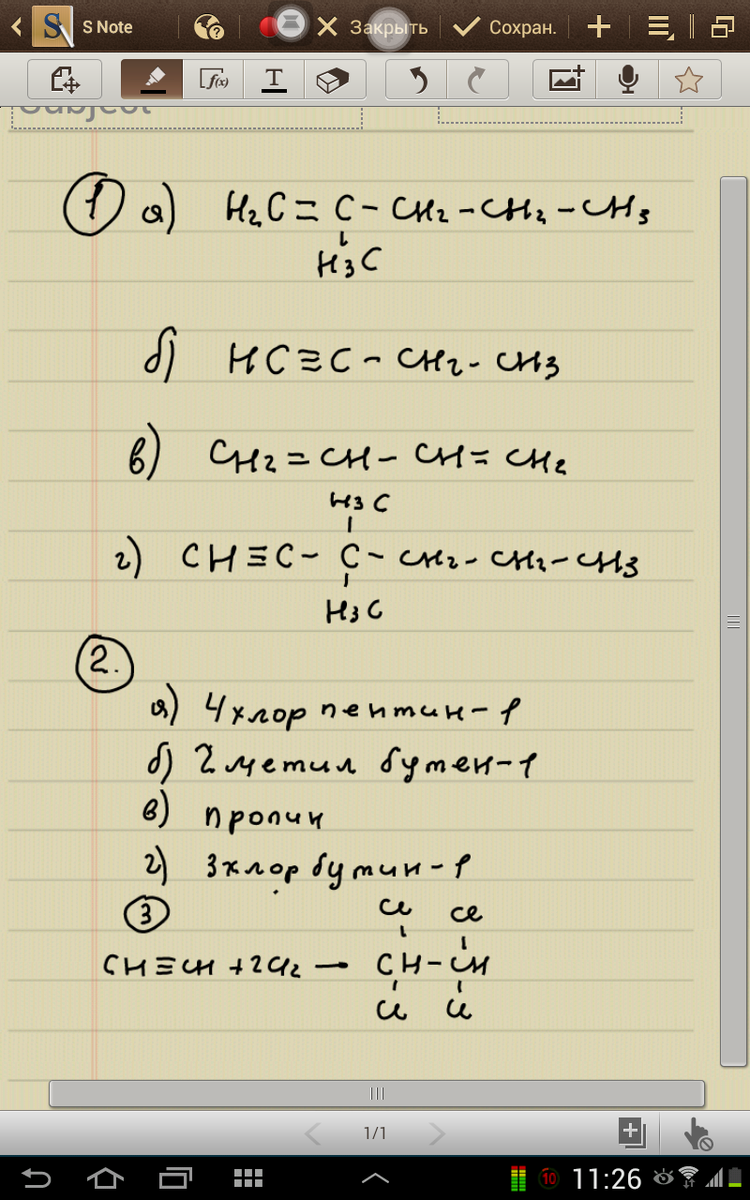 S Note
Закрыть
Сохран.
f(x)
T
Subject
1 а) H2C = C - CH2 - CH2 - CH3
H3C
б) HC ≡ C - CH2 - CH3
в) CH2 = CH - CH = CH2
H3C
г) CH ≡ C - C - CH2 - CH2 - CH3
H3C
2.
а) 4хлор пентин-1
б) 2 метил бутен-1
в) пропин
г) 3хлор бутин-1
3
Cl Cl
CH ≡ CH + 2Cl2 — CH - CH
Cl Cl
1/1
10 11:26